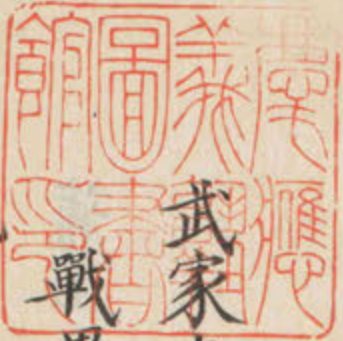 慶應
義塾
圖書
館印
武家
戰